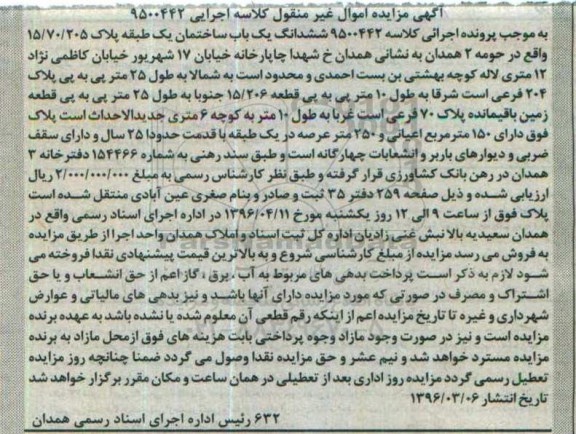 آگهی مزایده اموال غیر منقول کلاسه اجرایی ۹۵۰۰۴۴۲
به موجب پرونده اجرائی کلاسه ۹۵۰۰۴۴۲ ششدانگ یک باب ساختمان یک طبقه پلاک ۱۵/۷۰/۲۰۵
واقع در حومه ۲ همدان به نشانی همدان خ شهدا چاپارخانه خیابان ۱۷ شهریور خیابان کاظمی نژاد
۱۲ متری لاله کوچه بهشتی بن بست احمدی و محدود است به شمالا به طول ۲۵ متر پی به پی پلاک
۲۰۴ فرعی است شرقا به طول ۱۰ متر پی به پی قطعه ۱۵/۲۰۶ جنوبا به طول ۲۵ متر پی به پی قطعه
زمین باقیمانده پلاک ۷۰ فرعی است غربا به طول ۱۰ متر به کوچه ۶ متری جدیدالاحداث است پلاک
فوق دارای ۱۵۰ متر مربع اعیانی و ۲۵۰ متر عرصه در یک طبقه با قدمت حدودا ۲۵ سال و دارای سقف
ضربی و دیوارهای باربر و انشعابات چهارگانه است و طبق سند رهنی به شماره ۱۵۴۴۶۶ دفترخانه ۳
همدان در رهن بانک کشاورزی قرار گرفته و طبق نظر کارشناس رسمی به مبلغ ۲/۰۰۰/۰۰۰/۰۰۰ ریال
ارزیابی شده و ذیل صفحه ۲۵۹ دفتر ۳۵ ثبت و صادر و بنام صغری عین آبادی منتقل شده است
پلاک فوق از ساعت ۹ الی ۱۲ روز یکشنبه مورخ ۱۳۹۶/۰۴/۱۱ در اداره اجرای اسناد رسمی واقع در
همدان سعیدیه بالا نبش غنی زادیان اداره کل ثبت اسناد و املاک همدان واحد اجرا از طریق مزایده
به فروش می رسد مزایده از مبلغ کارشناسی شروع و به بالاترین قیمت پیشنهادی نقدا فروخته می
شود لازم به ذکر است پرداخت بدهی های مربوط به آب، برق، گاز اعم از حق انشعاب و یا حق
اشتراک و مصرف در صورتی که مورد مزایده دارای آنها باشد و نیز بدهی های مالیاتی و عوارض
شهرداری و غیره تا تاریخ مزایده اعم از اینکه رقم قطعی آن معلوم شده یا نشده باشد به عهده برنده
مزایده است و نیز در صورت وجود مازاد وجوه پرداختی بابت هزینه های فوق از محل مازاد به برنده
مزایده مسترد خواهد شد و نیم عشر و حق مزایده نقدا وصول می گردد ضمنا چنانچه روز مزایده
تعطیل رسمی گردد مزایده روز اداری بعد از تعطیلی در همان ساعت و مکان مقرر برگزار خواهد شد
تاریخ انتشار ۱۳۹۶/۰۳/۰۶
۶۳۲ رئیس اداره اجرای اسناد رسمی همدان